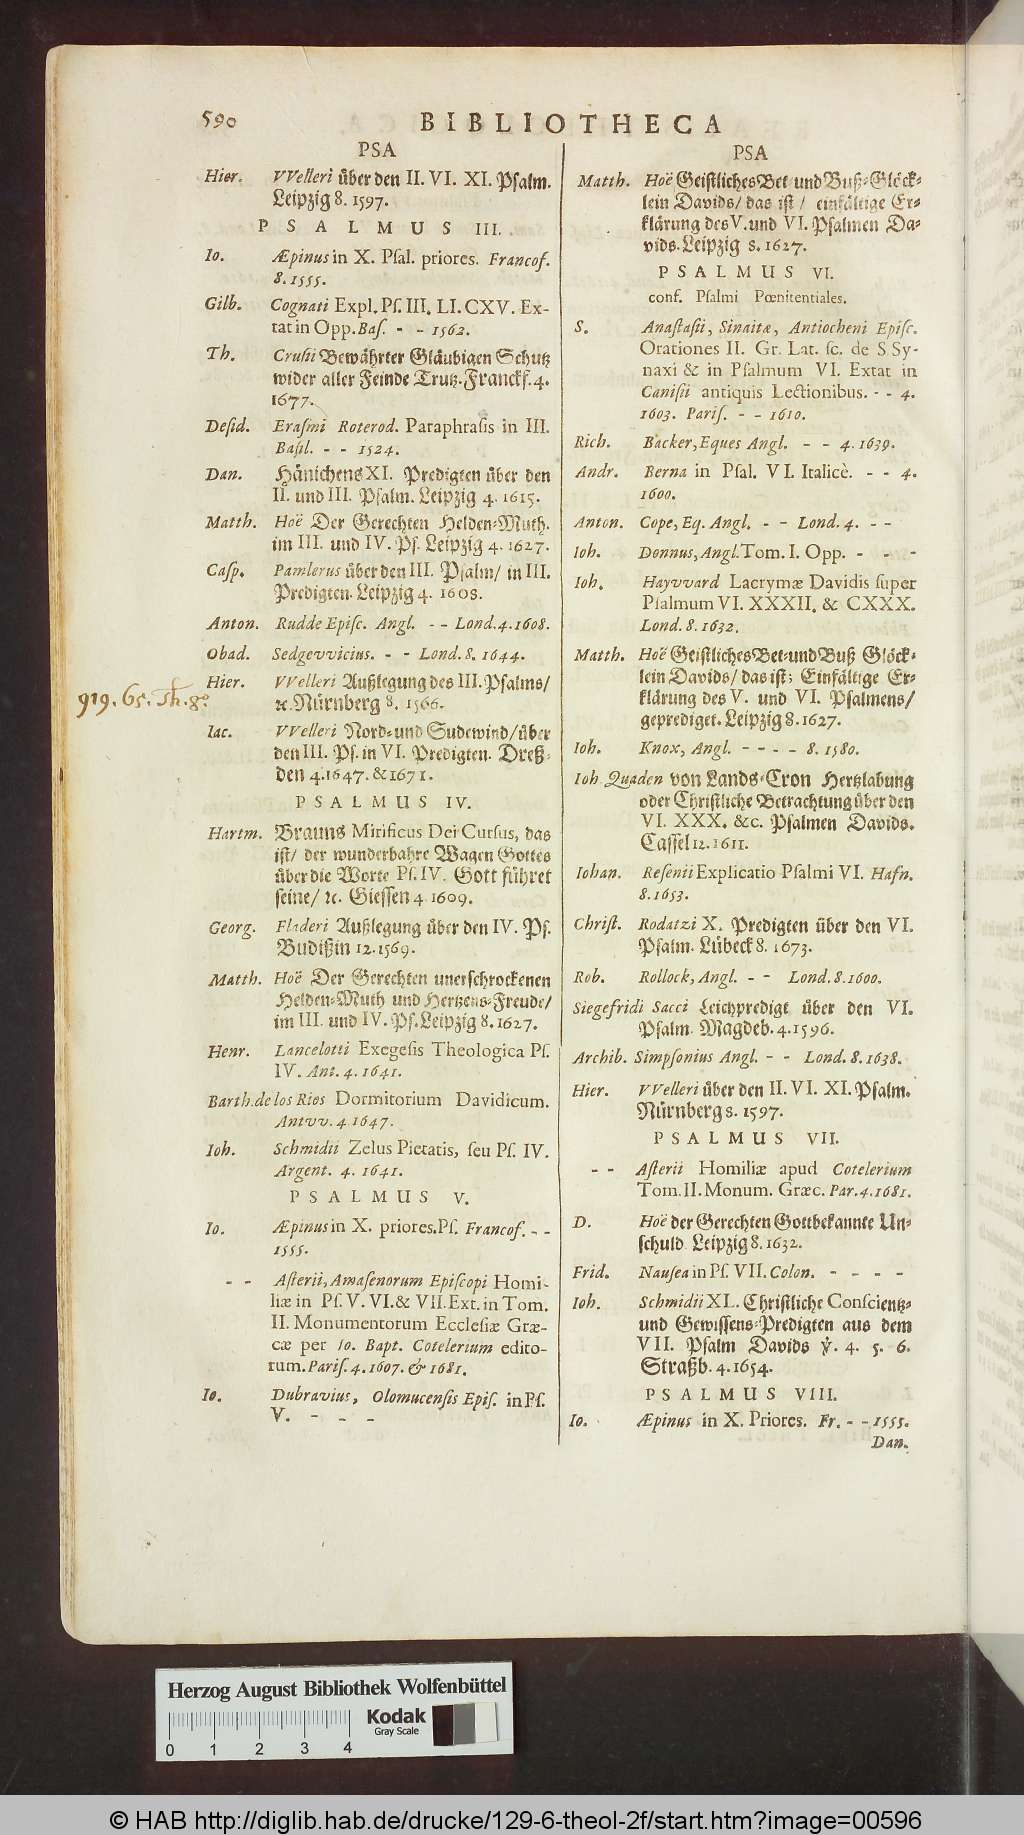 590
BIBLIOTHECA
PSA
Hier. VVelleri über den II. VI. XI. Psalm.
Leipzig 8. 1597.
PSALMUS III.
Io. Æpinus in X. Psal. priores. Francof.
8. 1555.
Gilb. Cognati Expl. Ps. III. LI. CXV. Ex-
tat in Opp. Bas. - - 1562.
Th. Crusii Bewährter Gläubigen Schutz
wider aller Feinde Trutz. Franckf. 4.
1677.
Desid. Erasmi Roterod. Paraphrasis in III.
Basil. - - 1524.
Dan. Hänichens XI. Predigten über den
II. und III. Psalm. Leipzig 4. 1615.
Matth. Hoë Der Gerechten Helden-Muth.
im III. und IV. Ps. Leipzig 4. 1627.
Casp. Pamlerus über den III. Psalm/ in III.
Predigten. Leipzig 4. 1608.
Anton. Rudde Episc. Angl. - - Lond. 4. 1608.
Obad. Sedgevvicius. - - Lond. 8. 1644.
Hier. VVelleri Außlegung des III. Psalms/
919. 65. Th. 8°
ꝛc. Nürnberg 8. 1566.
Iac. VVelleri Nord- und Sudewind/ über
den III. Ps. in VI. Predigten. Dreß-
den 4. 1647. & 1671.
PSALMUS IV.
Hartm. Brauns Mirificus Dei Cursus, das
ist/ der wunderbahre Wagen Gottes
über die Worte Ps. IV. Gott führet
seine/ ꝛc. Giessen 4. 1609.
Georg. Fladeri Außlegung über den IV. Ps.
Budißin 12. 1569.
Matth. Hoë Der Gerechten unerschrockenen
Helden-Muth und Hertzens-Freude/
im III. und IV. Ps. Leipzig 8. 1627.
Henr. Lancelotti Exegesis Theologica Ps.
IV. Ant. 4. 1641.
Barth. de los Rios Dormitorium Davidicum.
Antvv. 4. 1647.
Ioh. Schmidii Zelus Pietatis, seu Ps. IV.
Argent. 4. 1641.
PSALMUS V.
Io. Æpinus in X. priores. Ps. Francof. - -
1555.
- - Asterii, Amasenorum Episcopi Homi-
liæ in Ps. V. VI. & VII. Ext. in Tom.
II. Monumentorum Ecclesiæ Græ-
cæ per Io. Bapt. Cotelerium edito-
rum. Paris. 4. 1607. & 1681.
Io. Dubravius, Olomucensis Epis. in Ps.
V. - - -
PSA
Matth. Hoë Geistliches Bet- und Buß-Glöck-
lein Davids/ das ist/ einfältige Er-
klärung des V. und VI. Psalmen Da-
vids. Leipzig 8. 1627.
PSALMUS VI.
conf. Psalmi Pœnitentiales.
S. Anastasii, Sinaitæ, Antiocheni Episc.
Orationes II. Gr. Lat. sc. de S Sy-
naxi & in Psalmum VI. Extat in
Canisii antiquis Lectionibus. - - 4.
1603. Paris. - - 1610.
Rich. Backer, Eques Angl. - - 4. 1639.
Andr. Berna in Psal. VI. Italicè. - - 4.
1600.
Anton. Cope, Eq. Angl. - - Lond. 4. - -
Ioh. Donnus, Angl. Tom. I. Opp. - - -
Ioh. Hayvvard Lacrymæ Davidis super
Psalmum VI. XXXII. & CXXX.
Lond. 8. 1632.
Matth. Hoë Geistliches Bet- und Buß Glöck-
lein Davids/ das ist: Einfältige Er-
klärung des V. und VI. Psalmens/
geprediget. Leipzig 8. 1627.
Ioh. Knox, Angl. - - - - 8. 1580.
Ioh Quaden von Lands-Cron Hertzlabung
oder Christliche Betrachtung über den
VI. XXX. &c. Psalmen Davids.
Cassel 12. 1611.
Iohan. Resenii Explicatio Psalmi VI. Hafn.
8. 1653.
Christ. Rodatzi X. Predigten über den VI.
Psalm. Lübeck 8. 1673.
Rob. Rollock, Angl. - - Lond. 8. 1600.
Siegefridi Sacci Leichpredigt über den VI.
Psalm. Magdeb. 4. 1596.
Archib. Simpsonius Angl. - - Lond. 8. 1638.
Hier. VVelleri über den II. VI. XI. Psalm.
Nürnberg 8. 1597.
PSALMUS VII.
- - Asterii Homiliæ apud Cotelerium
Tom. II. Monum. Græc. Par. 4. 1681.
D. Hoë der Gerechten Gottbekannte Un-
schuld Leipzig 8. 1632.
Frid. Nausea in Ps. VII. Colon. - - - -
Ioh. Schmidii XL. Christliche Conscientz-
und Gewissens-Predigten aus dem
VII. Psalm Davids ℣. 4. 5. 6.
Straßb. 4. 1654.
PSALMUS VIII.
Io. Æpinus in X. Priores. Fr. - - 1555.
Dan.
Herzog August Bibliothek Wolfenbüttel
Kodak
Gray Scale
0 1 2 3 4
© HAB http://diglib.hab.de/drucke/129-6-theol-2f/start.htm?image=00596